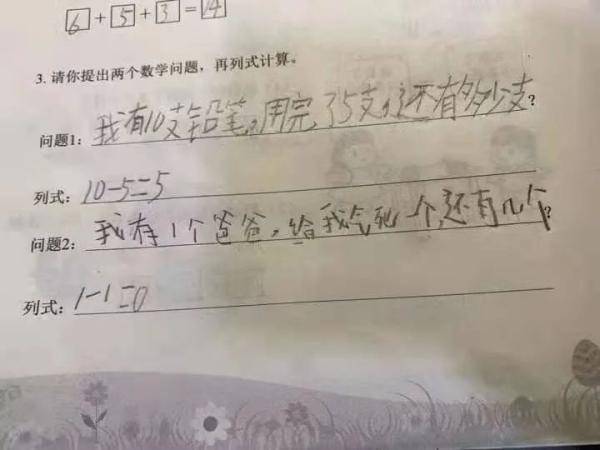 6+5+3=14
3. 请你提出两个数学问题，再列式计算。
问题1：我有10支铅笔，用完了5支，还有多少支？
列式：10-5=5
问题2：我有1个爸爸，给我气死一个，还有几个？
列式：1-1=0